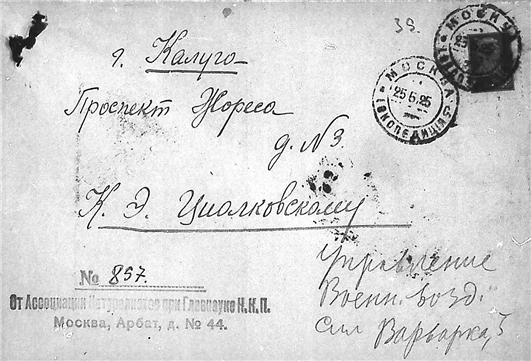 39.
МОСКВА
г. Калуга
МОСКВА
25.6.25
ЭКСПЕДИЦИЯ
Проспект Жореса
д. N 3.
К. Э. Циолковскому
№ 857.
От Ассоциации Натуралистов при Главнауке Н.К.П.
Москва, Арбат, д. № 44.
Управление
Военн. возд.
сил Варварка, 5